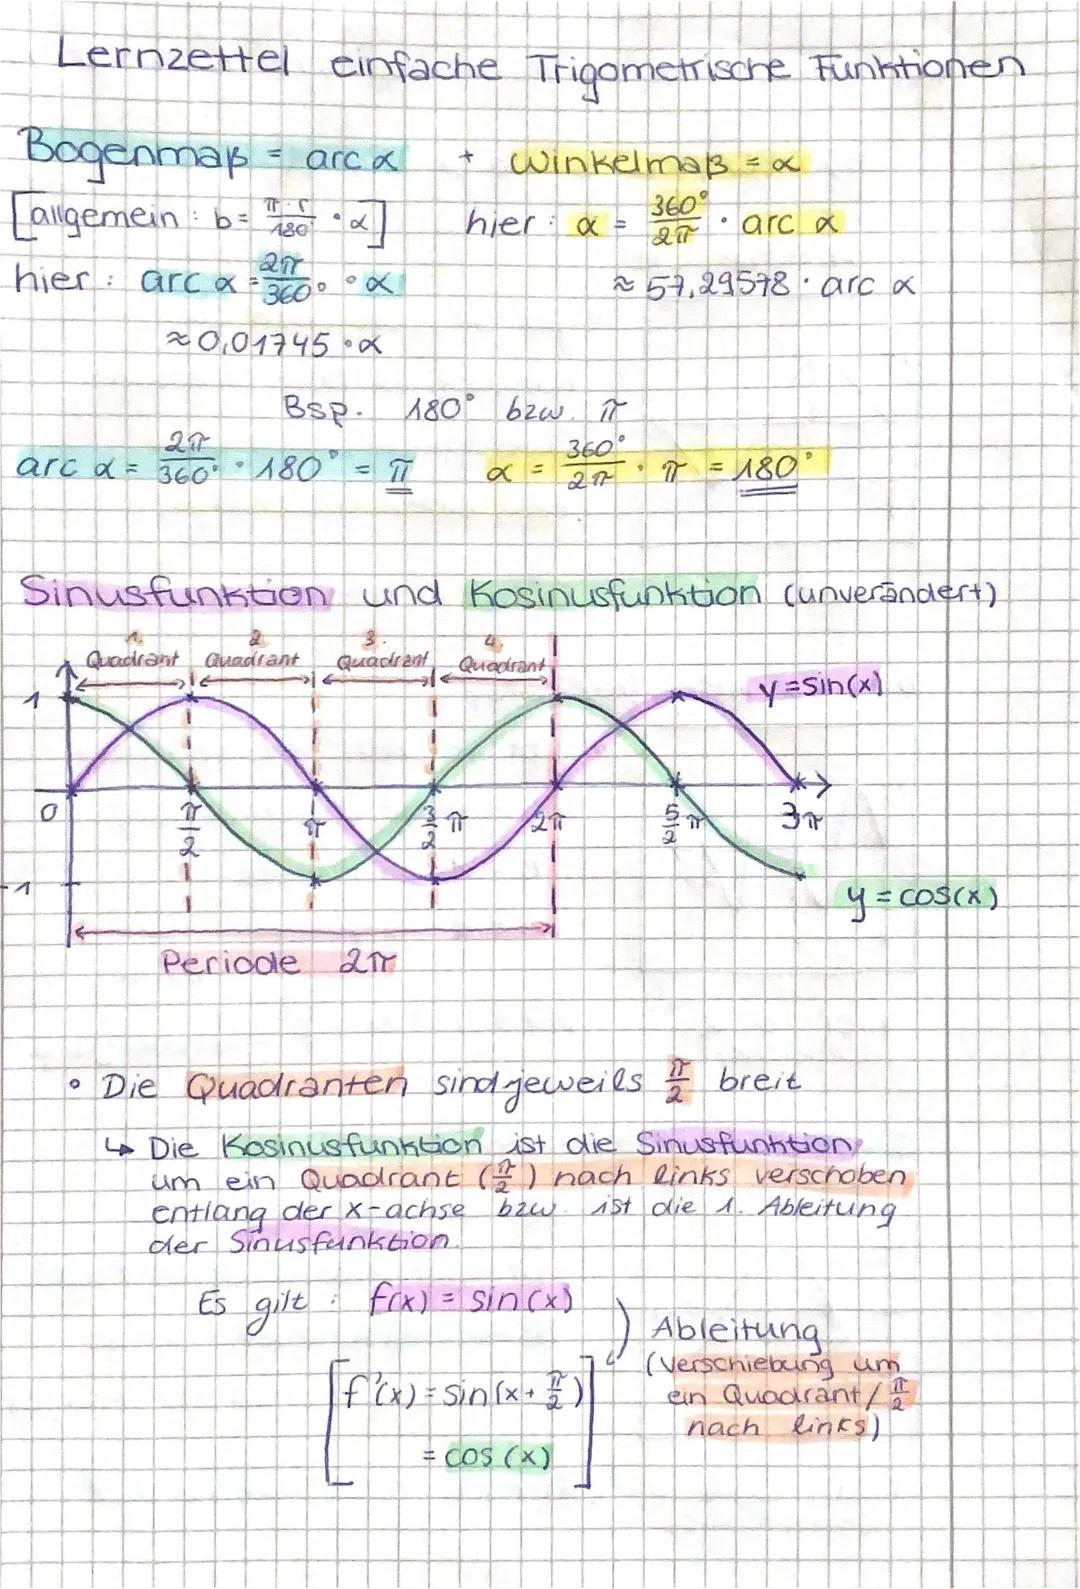 Lernzettel einfache Trigometrische Funktionen
Bogenmaß = arc α + Winkelmaß = α
[allgemein: b = π·r/180° · α] hier: α = 360°/2π · arc α
hier: arc α = 2π/360° · α ≈ 57,29578 · arc α
≈ 0,01745 · α
Bsp. 180° bzw. π
arc α = 2π/360° · 180° = π α = 360°/2π · π = 180°
Sinusfunktion und Kosinusfunktion (unverändert)
1. 2. 3. 4.
Quadrant Quadrant Quadrant Quadrant
1 y=sin(x)
0 π/2 π 3/2 π 2π 5/2 π 3π
-1 y = cos(x)
Periode 2π
• Die Quadranten sind jeweils π/2 breit
↳ Die Kosinusfunktion ist die Sinusfunktion
um ein Quadrant (π/2) nach links verschoben
entlang der x-achse bzw. ist die 1. Ableitung
der Sinusfunktion.
Es gilt: f(x) = sin(x)
Ableitung
(Verschiebung um
[f'(x) = sin(x + π/2) ein Quadrant / π/2
nach links)
= cos(x)]